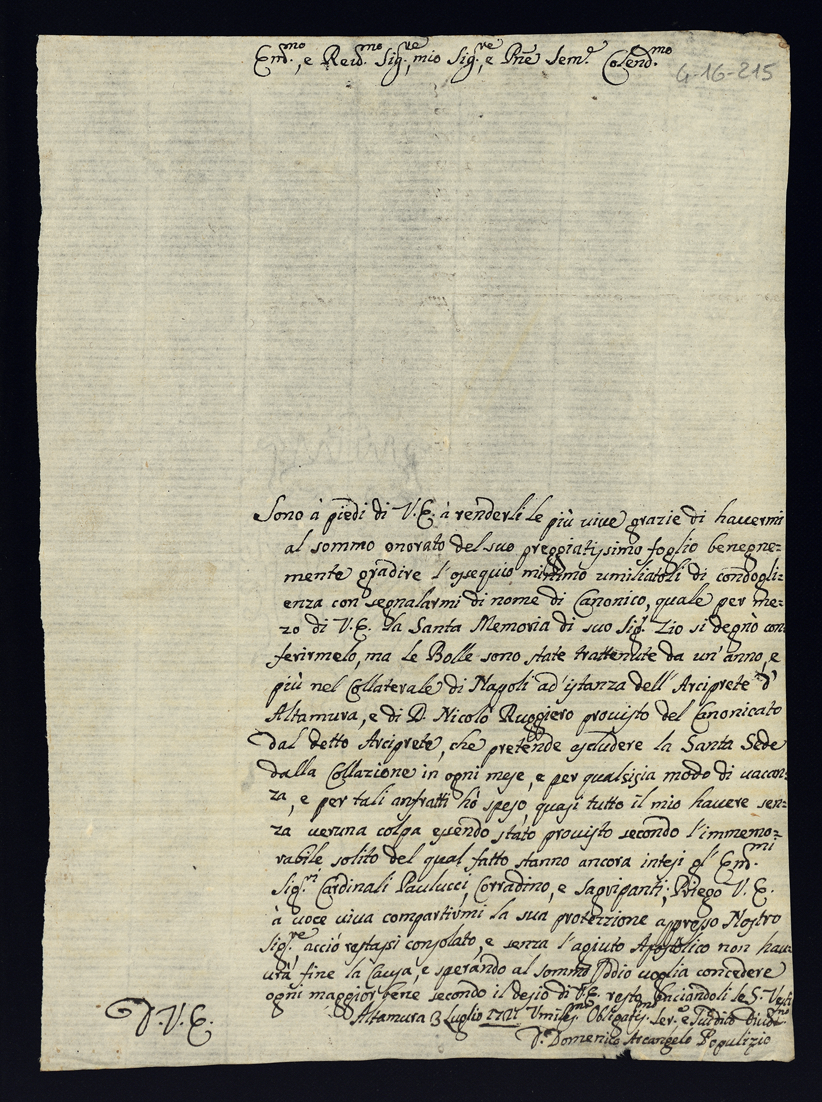 Em.mo, e Reu.mo Sig.re, mio Sig.re, e Pne Sem.e Colend.mo
4-16-215
Sono à piedi di V.E. à renderli le più viue grazie di hauermi
al sommo onorato del suo preggiatissimo foglio benegne=
mente gradire l'ossequio minimo umiliatoli di condogli=
enza con segnalarmi di nome di Canonico, quale per me=
zo di V.E. la Santa Memoria di suo Sig.r Zio si degnò con
ferirmelo, ma le Bolle sono state trattenute da un'anno, e
più nel Collaterale di Napoli ad'istanza dell'Arciprete d'
Altamura, e di D. Nicolò Ruggiero prouisto del Canonicato
dal detto Arciprete, che pretende escludere la Santa Sede
dalla Collazione in ogni mese, e per qualsisia modo di uacan=
za, e per tali anfratti hò speso quasi tutto il mio hauere sen=
za ueruna colpa essendo stato prouisto secondo l'immemo=
rabile solito del qual fatto stanno ancora intesi gl'Em.mi
Sig.ri Cardinali Paulucci, Corradino, e Sagripanti; Priego V.E.
à uoce uiua compartirmi la sua protezzione appresso Nostro
Sig.re acciò restassi consolato, e senza l'agiuto Apostolico non hau
urà fine la Causa, e sperando al sommo Iddio uoglia concedere
ogni maggior bene secondo il desio di V.E. resto bacciandoli le S. Vesti
Altamura 3 Luglio 1721 Vmiliss.mo Obligatis.mo Ser.e e
D. Domenico Arcangelo Populizio
D.V.E.